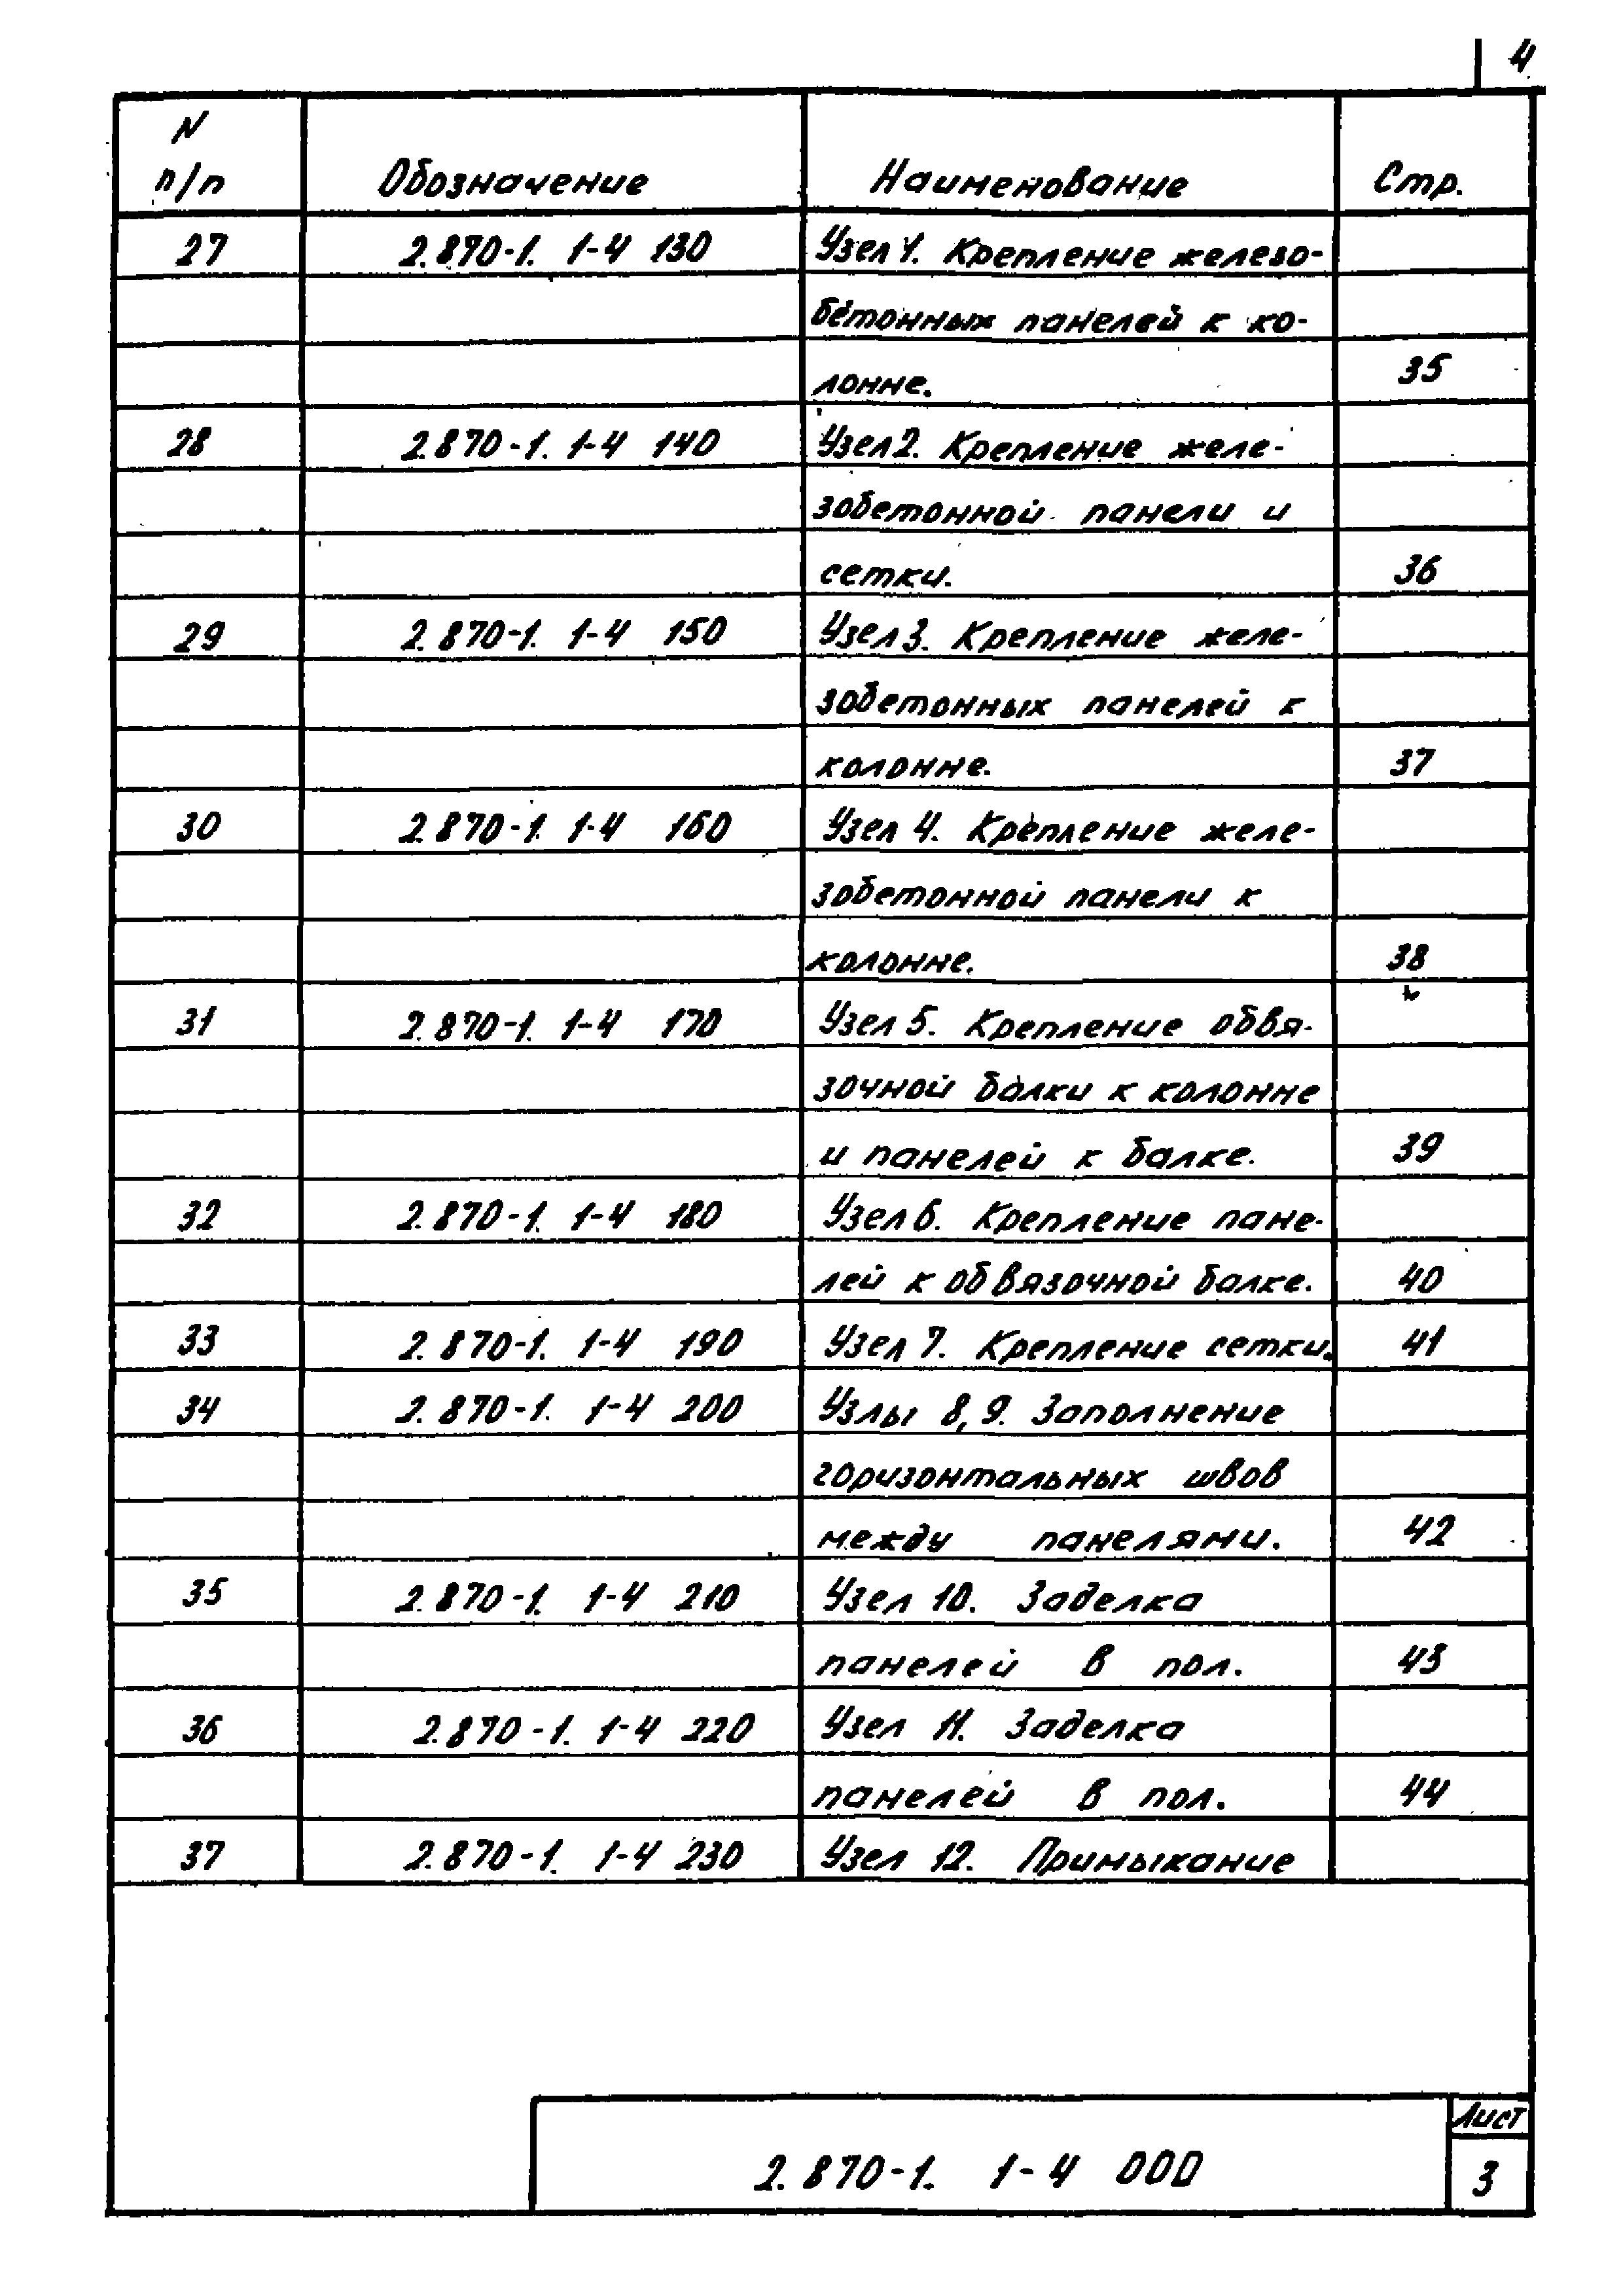 4
N п/п Обозначение Наименование Стр.
27 2.870-1. 1-4 130 Узел 1. Крепление железо-
бетонных панелей к ко-
лонне. 35
28 2.870-1. 1-4 140 Узел 2. Крепление желе-
зобетонной панели и
сетки. 36
29 2.870-1. 1-4 150 Узел 3. Крепление желе-
зобетонных панелей к
колонне. 37
30 2.870-1. 1-4 160 Узел 4. Крепление желе-
зобетонной панели к
колонне. 38
31 2.870-1. 1-4 170 Узел 5. Крепление обвя-
зочной балки к колонне
и панелей к балке. 39
32 2.870-1. 1-4 180 Узел 6. Крепление пане-
лей к обвязочной балке. 40
33 2.870-1. 1-4 190 Узел 7. Крепление сетки. 41
34 2.870-1. 1-4 200 Узлы 8, 9. Заполнение
горизонтальных швов
между панелями. 42
35 2.870-1. 1-4 210 Узел 10. Заделка
панелей в пол. 43
36 2.870-1. 1-4 220 Узел 11. Заделка
панелей в пол. 44
37 2.870-1. 1-4 230 Узел 12. Примыкание
Лист
2.870-1. 1-4 000 3